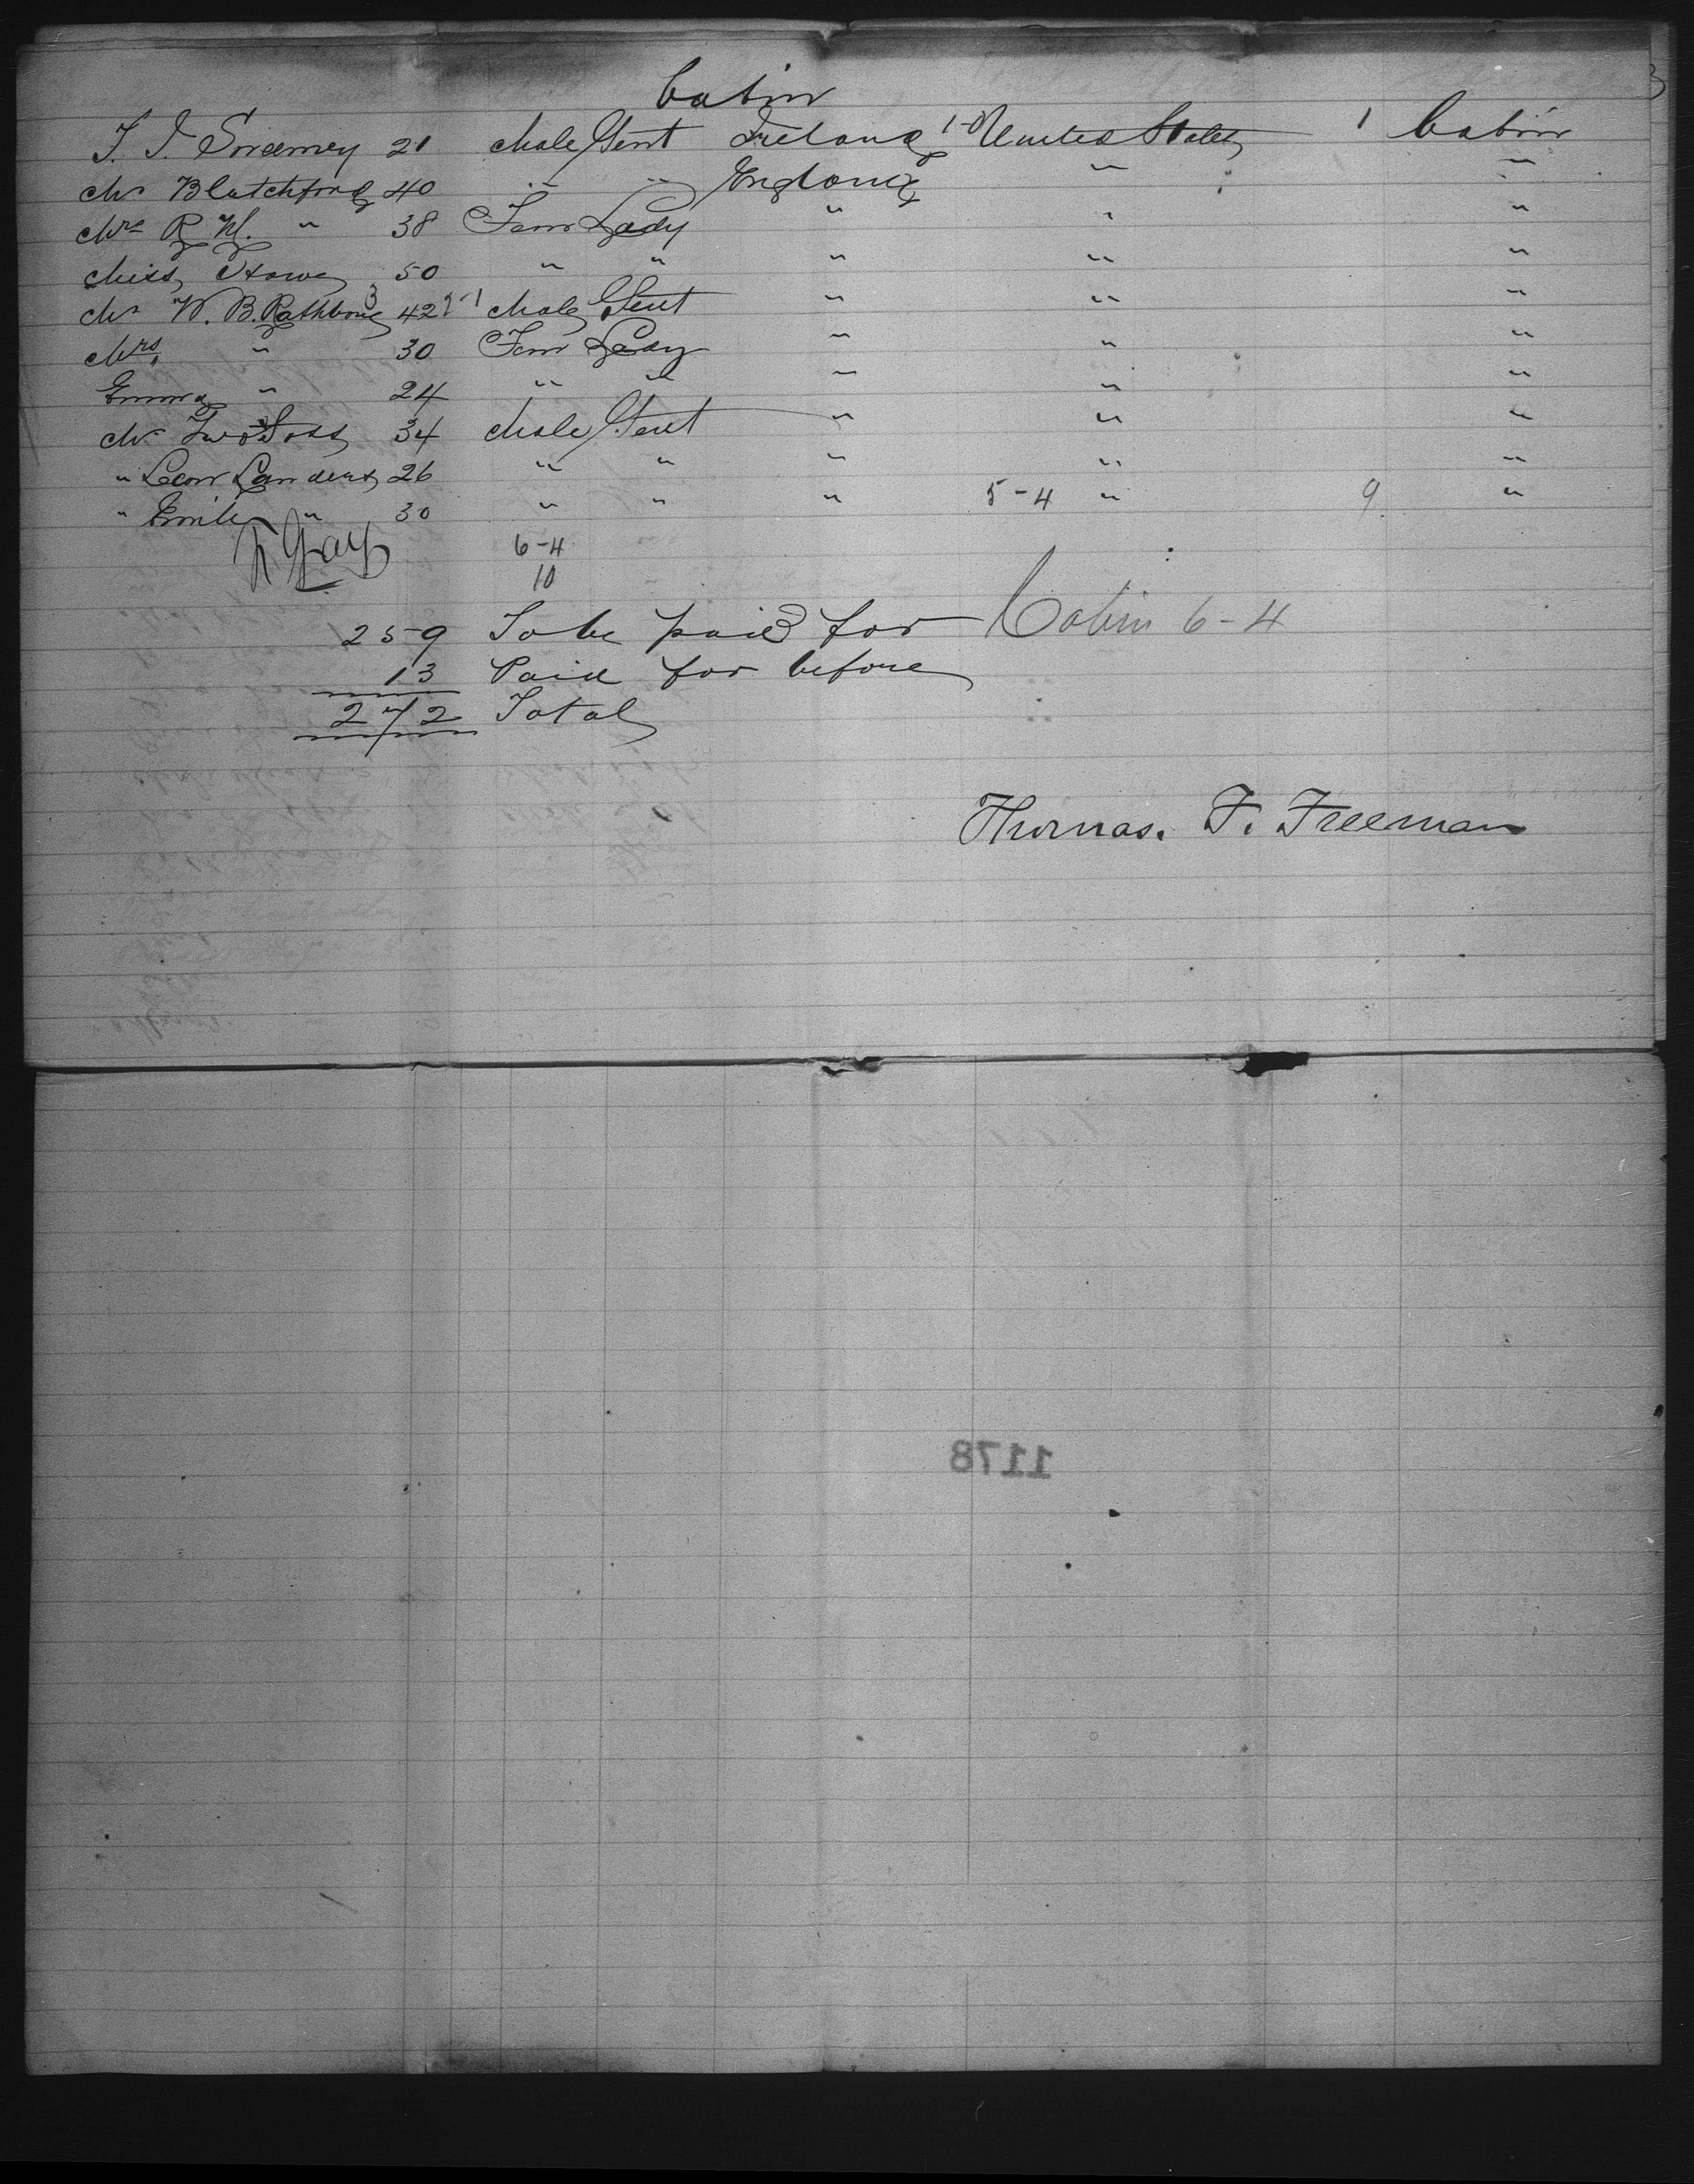 Cabin
T. J. Sweeney 21 Male Gent Ireland 1-0 United States 1 Cabin
Mr Blatchford 40 " " England " "
Mrs R. W. " 38 Fem Lady " " "
Miss Howe 50 " " " " "
Mr W. B. Rathbone 3 42 2-1 Male Gent " " "
Mrs, " 30 Fem Lady " " "
Emma " 24 " " " " "
Mr 34 Male Gent " " "
" Leon Landers 26 " " " " "
" Emile " 30 " " " 5-4 " 9 "
Gay 6-4
10
259 To be paid for Cabin 6-4
13 Paid for before
272 Total
Thomas. F. Freeman
1178